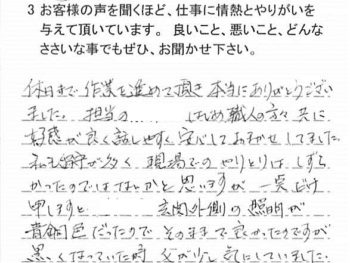 3 お客様の声を聞くほど、仕事に情熱とやりがいを
与えて頂いています。良いこと、悪いこと、どんな
ささいな事でもぜひ、お聞かせ下さい。
休日まで作業を進めて頂き本当にありがとうござい
ました。担当の はじめ職人の方々共に
好感が良く話しやすく安心しておまかせしてました。
私も留守が多く 現場でのやりとりはしずら
かったのではないかと思いますが 一点だけ
申しますと 玄関外側の照明が
青銅色だったので そのままで良かったのですが
黒くなっていた時 父が少し気にしていました。